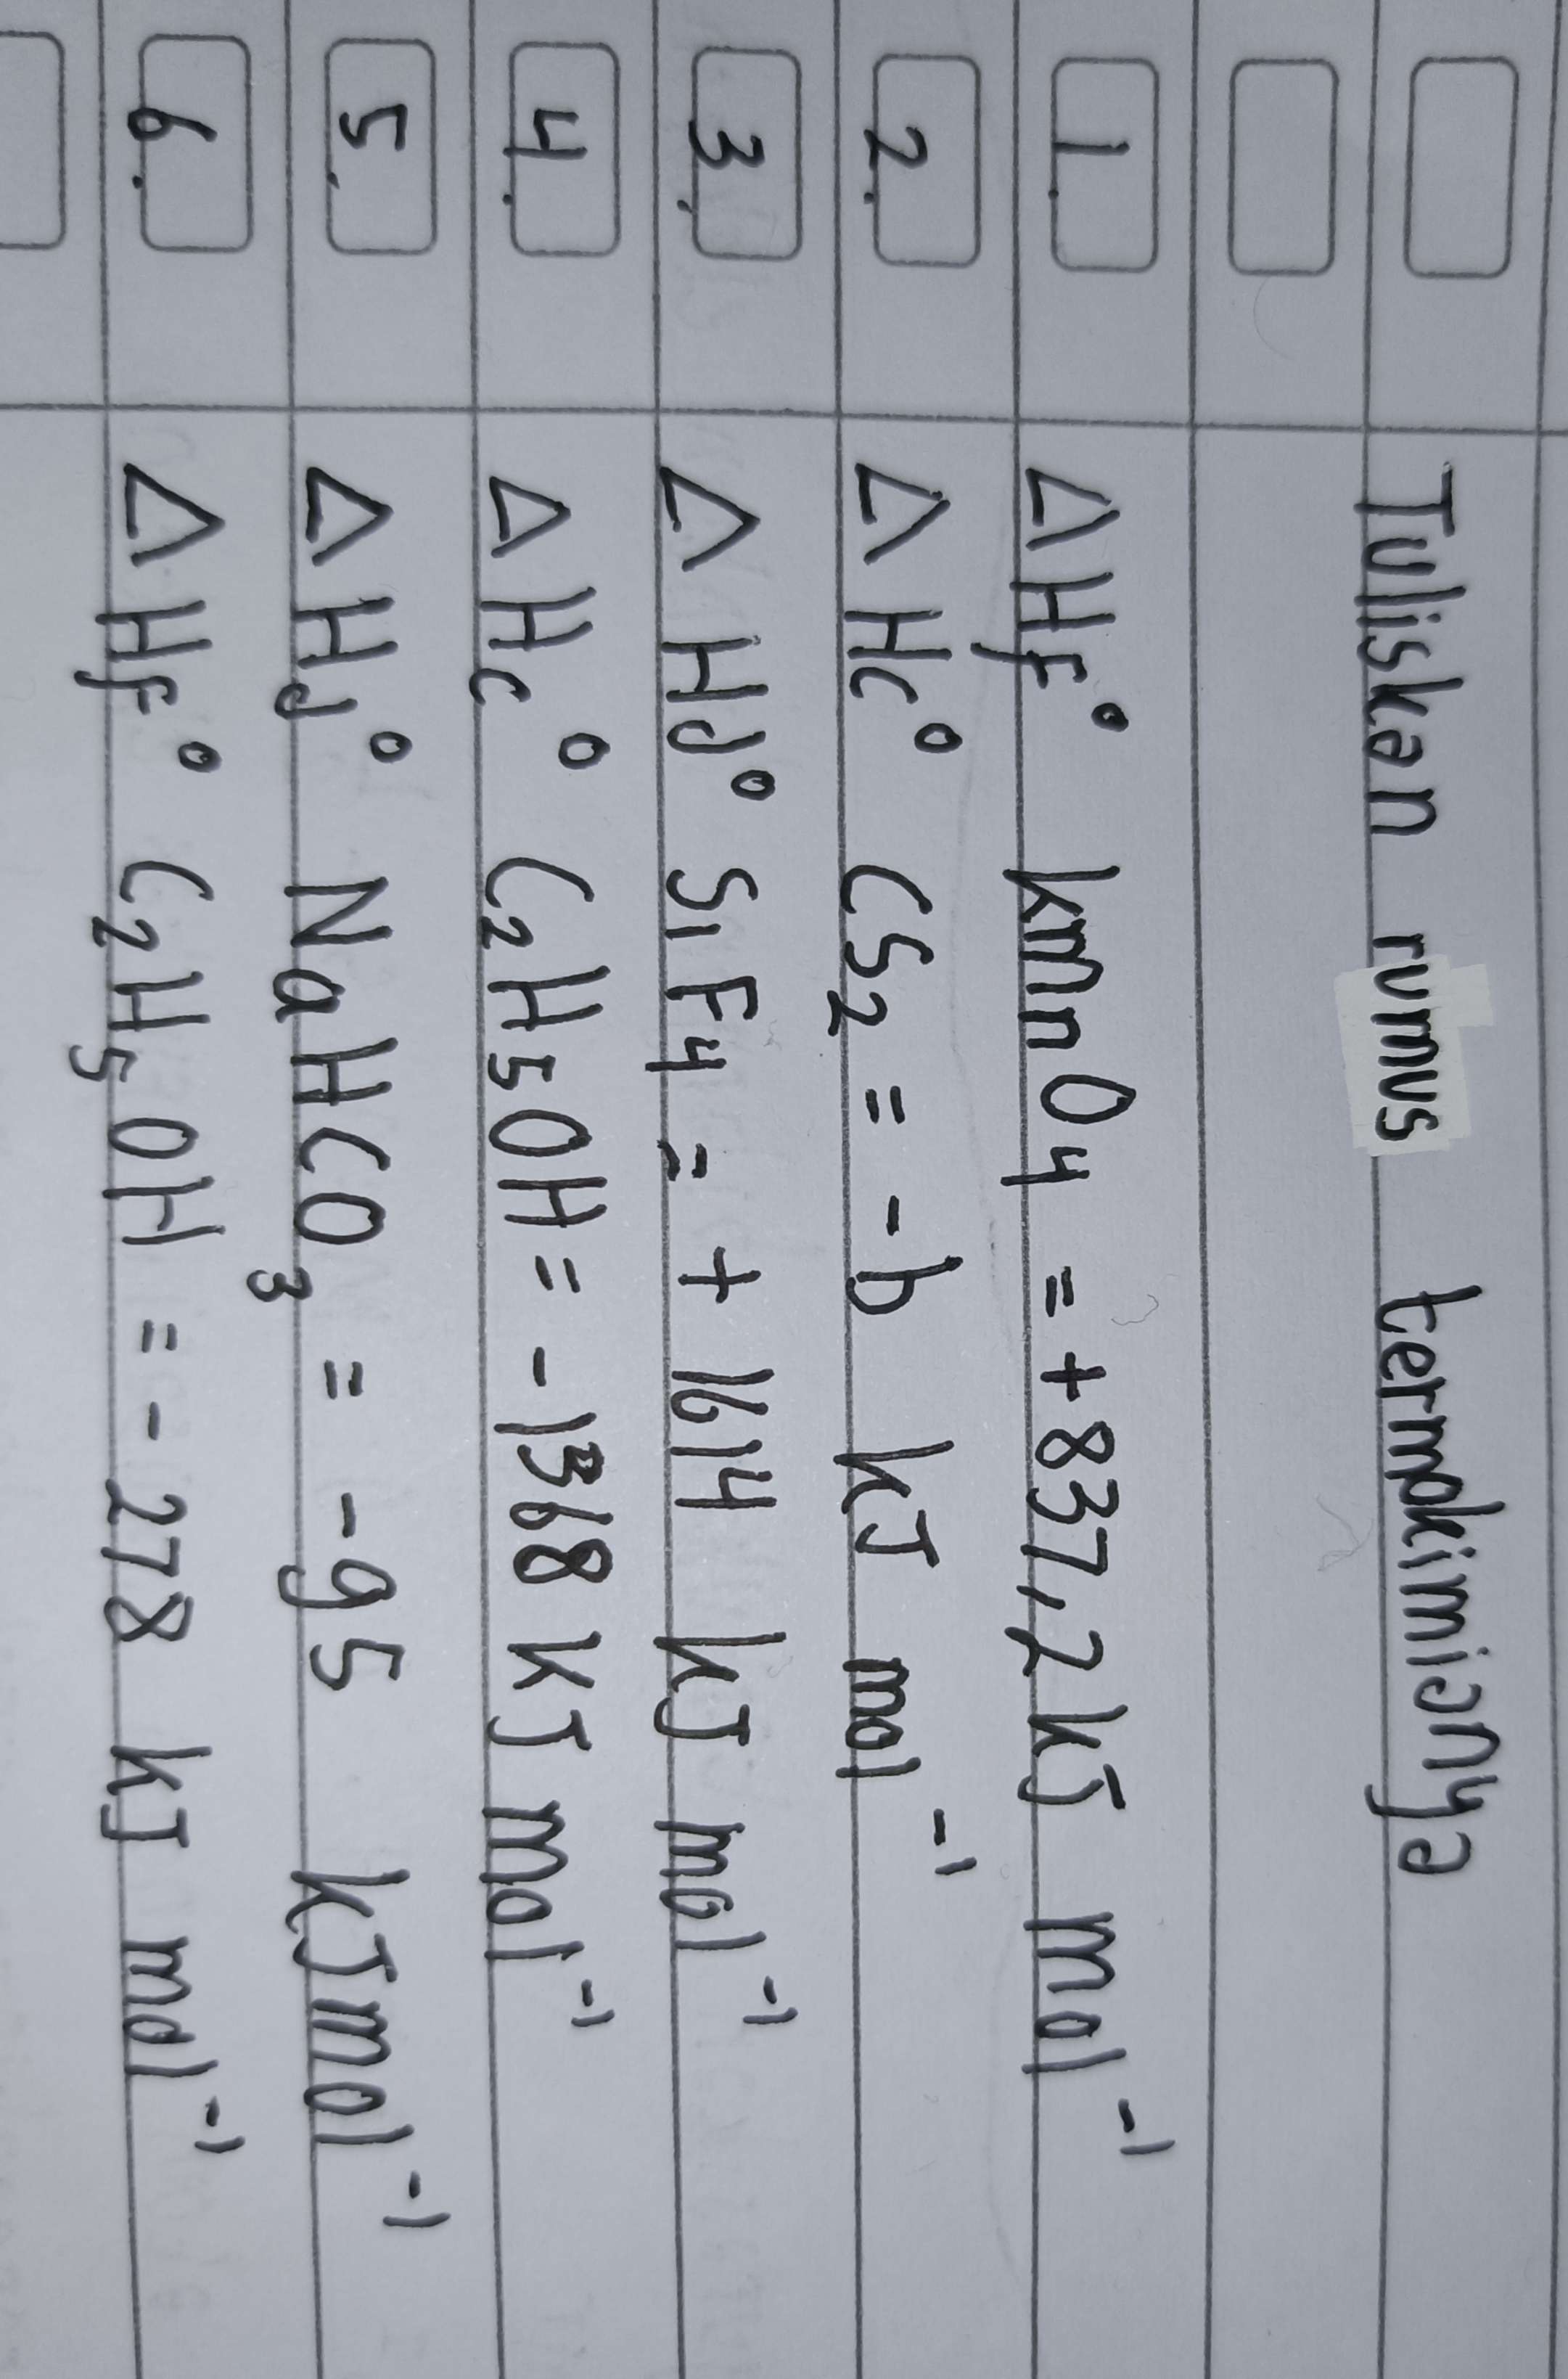 Tuliskan rumus termokimianya
1. ΔHf° kmnO4 = +837,2 kJ mol⁻¹
2. ΔHc° CS2 = -b kJ mol⁻¹
3. ΔHd° SiF4 = + 1614 kJ mol⁻¹
4. ΔHc° C2H5OH = -1368 kJ mol⁻¹
5. ΔHd° NaHCO3 = -95 kJ mol⁻¹
6. ΔHf° C2H5OH = -278 kJ mol⁻¹